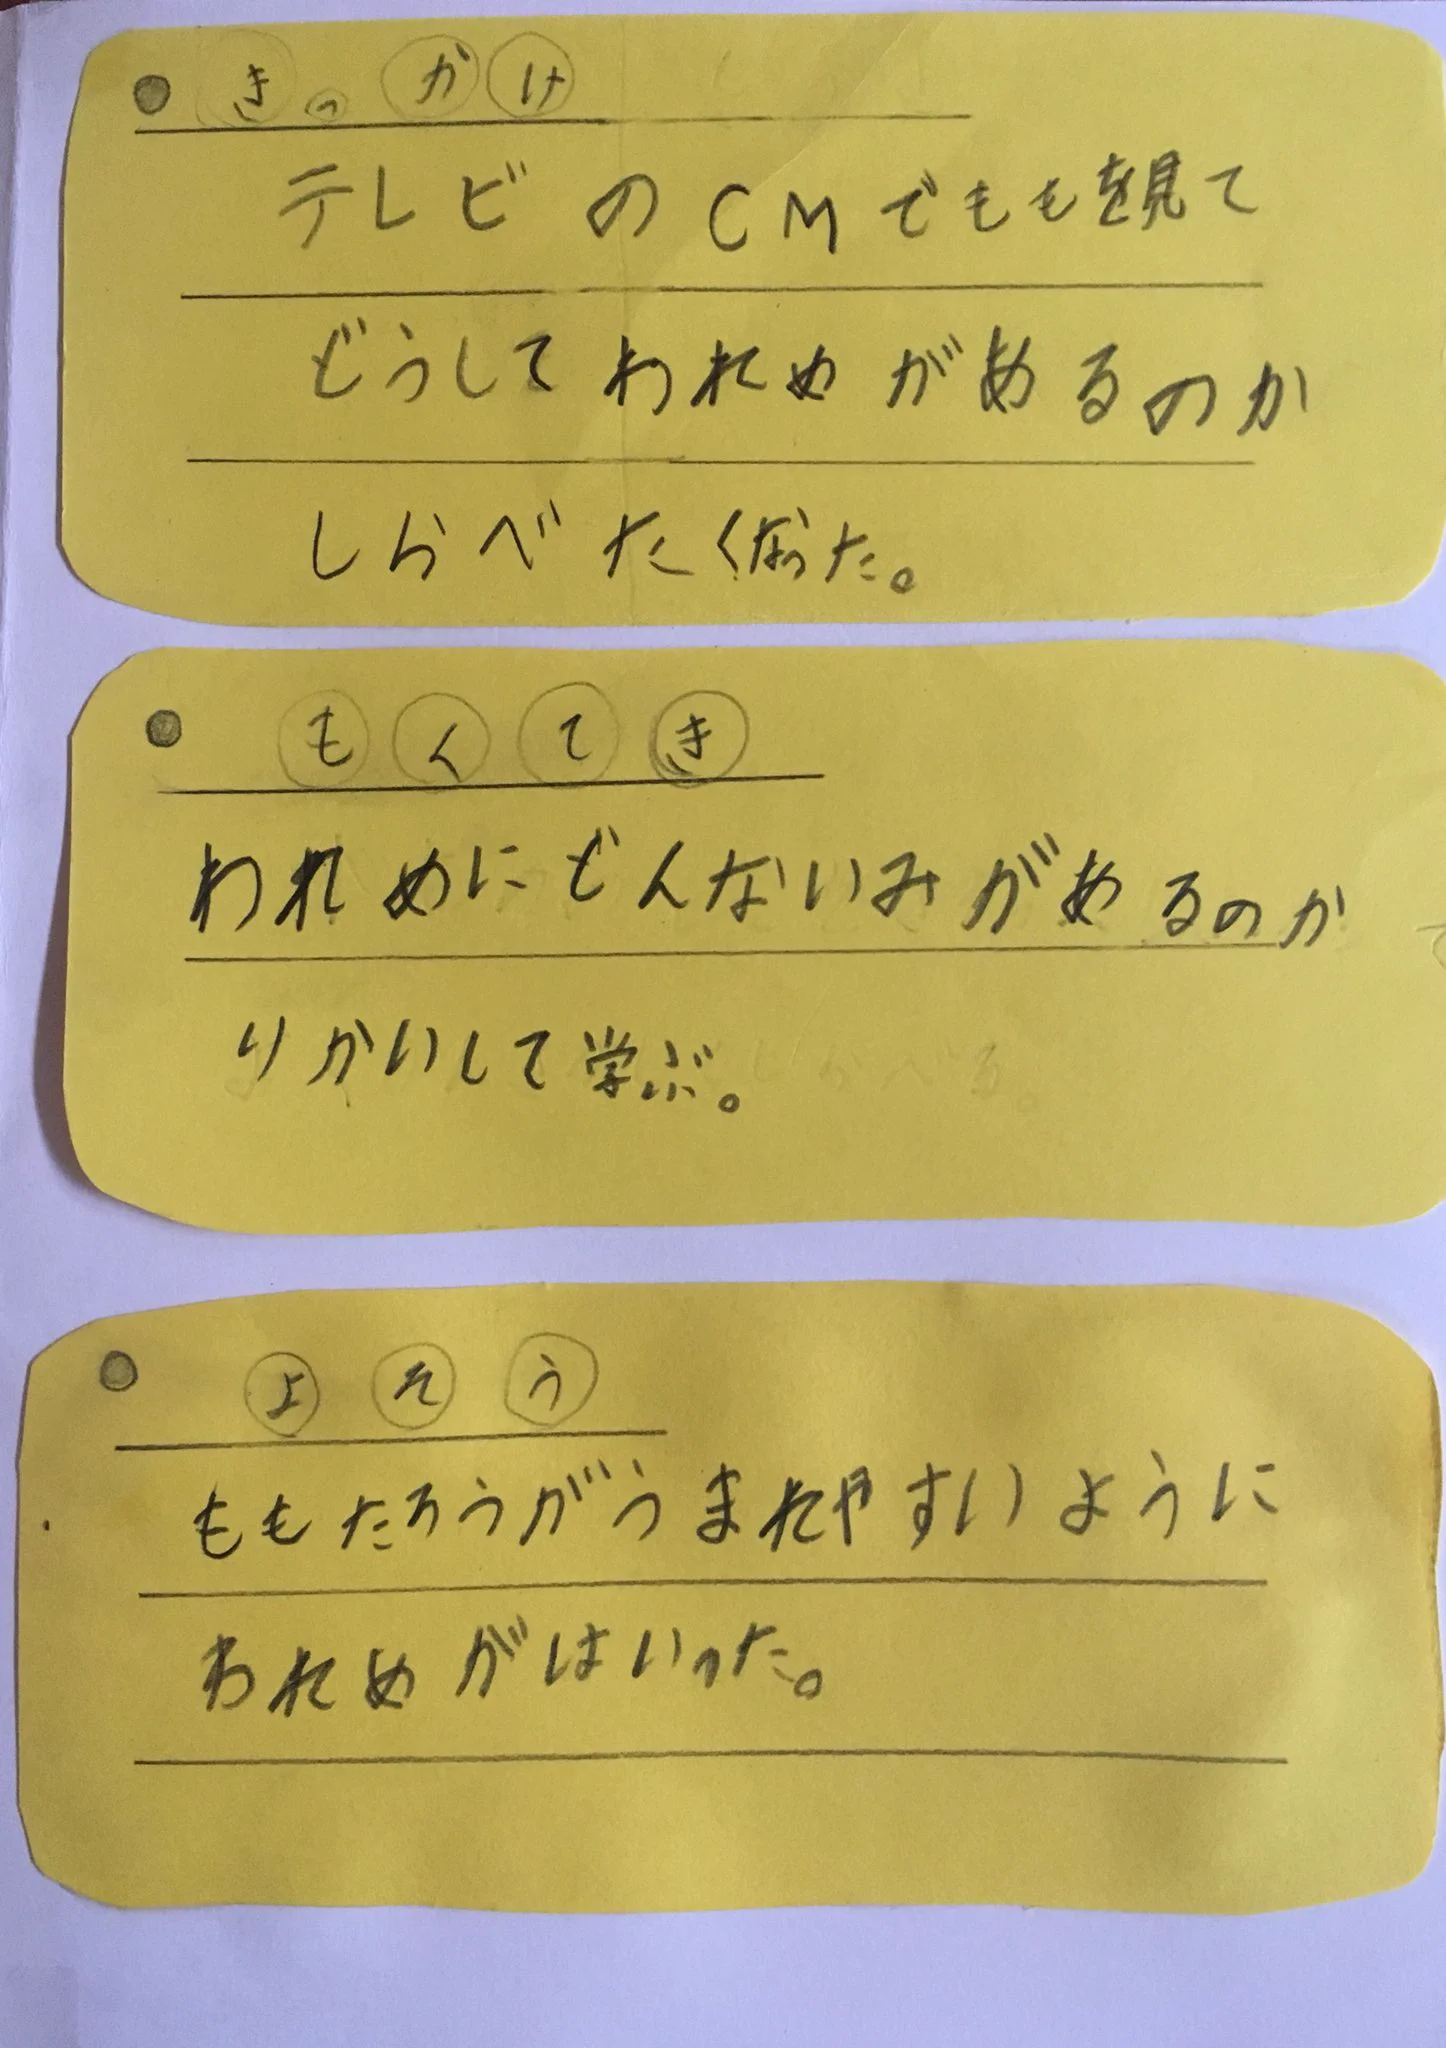 ●きっかけ
テレビのCMでももを見て
どうしてわれめがあるのか
しらべたくなった。
●もくてき
われめにどんないみがあるのか
りかいして学ぶ。
●よそう
ももたろうがうまれやすいように
われめがはいった。